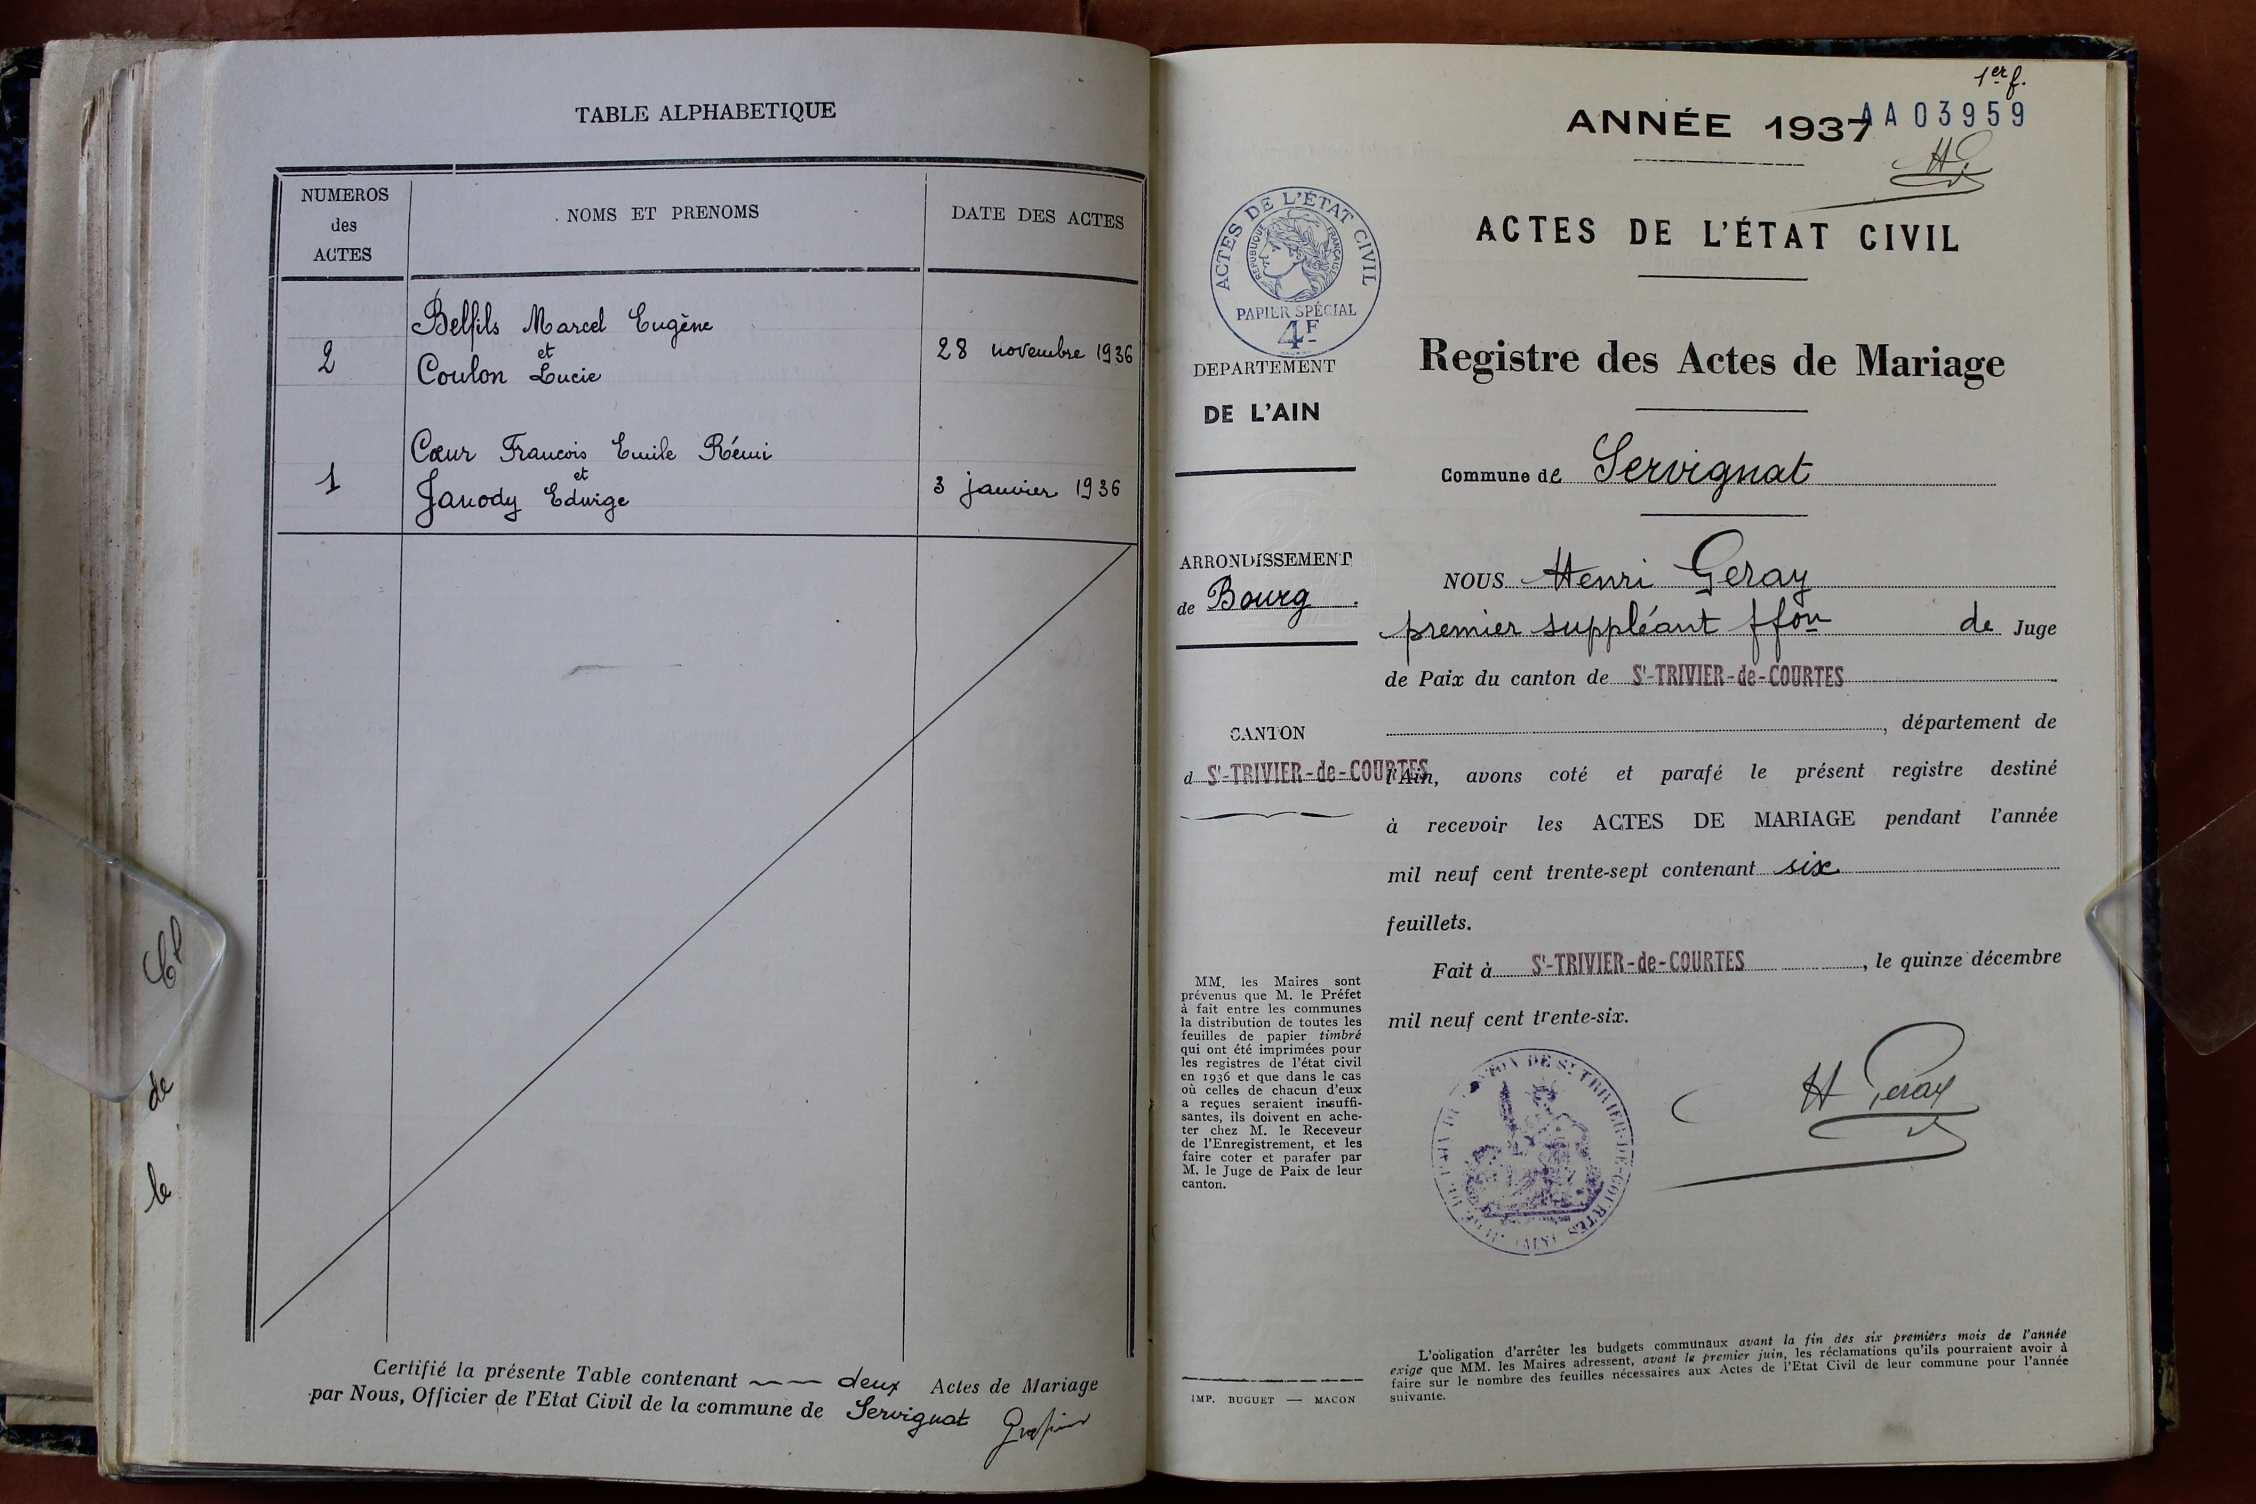 TABLE ALPHABETIQUE
NUMEROS
des
ACTES
NOMS ET PRENOMS
DATE DES ACTES
2
Belfils Marcel Eugène
et
Coulon Lucie
28 novembre 1936
1
Cœur Francois Emile Rémi
et
Janody Edwige
3 janvier 1936
Certifié la présente Table contenant deux Actes de Mariage
par Nous, Officier de l'Etat Civil de la commune de Servignat
de
le
1er f.
ANNÉE 1937
AA03959
ACTES DE L'ÉTAT CIVIL
RÉPUBLIQUE FRANÇAISE
PAPIER SPÉCIAL
4F
DEPARTEMENT
DE L'AIN
ARRONDISSEMENT
de Bourg
CANTON
d St-TRIVIER-de-COURTES
MM. les Maires sont
prévenus que M. le Préfet
à fait entre les communes
la distribution de toutes les
feuilles de papier timbré
qui ont été imprimées pour
les registres de l'état civil
en 1936 et que dans le cas
où celles de chacun d'eux
a reçues seraient insuffi-
santes, ils doivent en ache-
ter chez M. le Receveur
de l'Enregistrement, et les
faire coter et parafer par
M. le Juge de Paix de leur
canton.
IMP. BUGUET — MACON
ACTES DE L'ÉTAT CIVIL
Registre des Actes de Mariage
Commune de Servignat
NOUS Henri Geray
premier suppléant ffon de Juge
de Paix du canton de St-TRIVIER-de-COURTES
, département de
l'Ain, avons coté et parafé le présent registre destiné
à recevoir les ACTES DE MARIAGE pendant l'année
mil neuf cent trente-sept contenant six
feuillets.
Fait à St-TRIVIER-de-COURTES, le quinze décembre
mil neuf cent trente-six.
H Geray
L'obligation d'arrêter les budgets communaux avant la fin des six premiers mois de l'année
exige que MM. les Maires adressent, avant le premier juin, les réclamations qu'ils pourraient avoir à
faire sur le nombre des feuilles nécessaires aux Actes de l'Etat Civil de leur commune pour l'année
suivante.